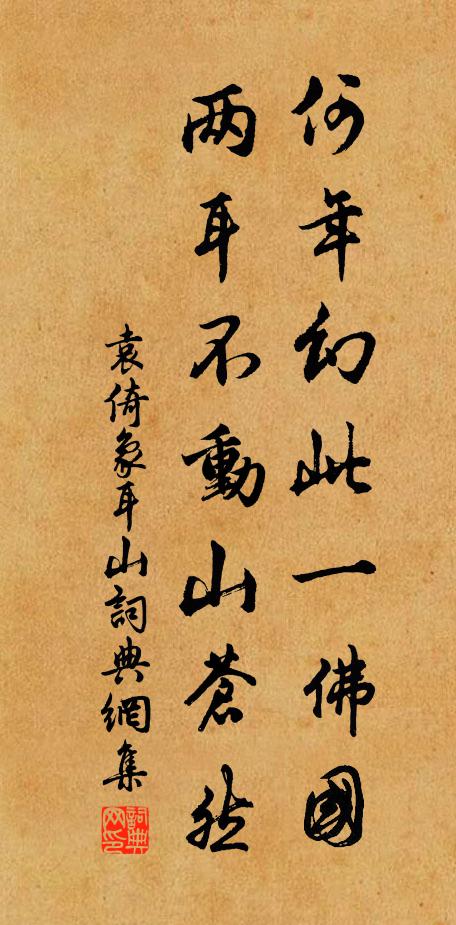 何年幻此一佛國
两耳不動山蒼然
袁倚象耳山詞典網集
詞典網印